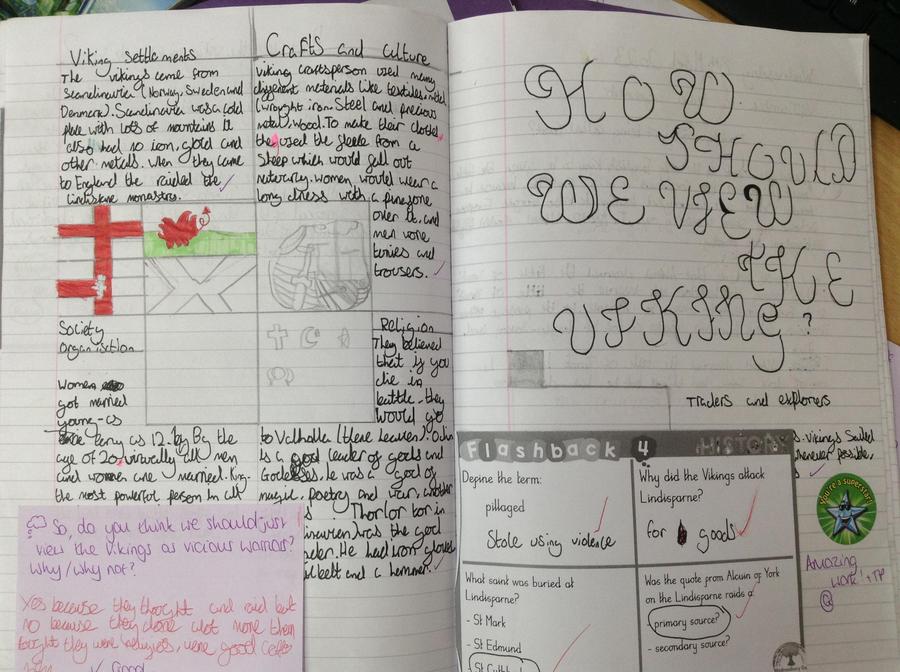 Viking settlements
The vikings came from
Scandinavia (Norway, Sweden and
Denmark). Scandinavia was a cold
place with lots of mountains it
also had so iron, gold and
other metals. when they came
to England the raided the
lindisfarne monastry.
Crafts and culture
viking craftsperson used many
different materials like textiles, metal
(wrought iron. Steel and precious
metal, wood. To make their clothes
they used the fleece from a
sheep which would fall out
naturaly. women would wear a
long dress with a pinafore
over it. and
men wore
tunics and
trousers.
Society
Organisation
Women
got married
young-as
early as 12. By the
age of 20, virtually all men
and women are married. King-
the most powerful person in all
Religion
They believed
that if you
die in
battle, they
would go
to Valhalla (there heaven). Odin
is a leader of gods and
Goddesses. He was a god of
magic, poetry and war, another
Thor (or bor in
was the god
He had iron gloves
belt and a hammer.
So, do you think we should just
view the Vikings as vicious warriors?
Why/Why not?
Yes because they thought and raid but
no because they done alot more then
fought they were were good
Good
HOW
SHOULD
WE VIEW
THE
VIKING?
Traders and explorers
s. vikings Sailed
whenever possible,
Flashback 4 HISTORY
Define the term:
pillaged
Stole using violence
Why did the Vikings attack
Lindisparne?
for goods
What saint was buried at
Lindisparne?
- St Mark
- St Edmund
Was the quote from Alcuin of York
on the Lindisparne raids a
- primary source?
- secondary source?
You're a superstar!
Amazing
work! +TP